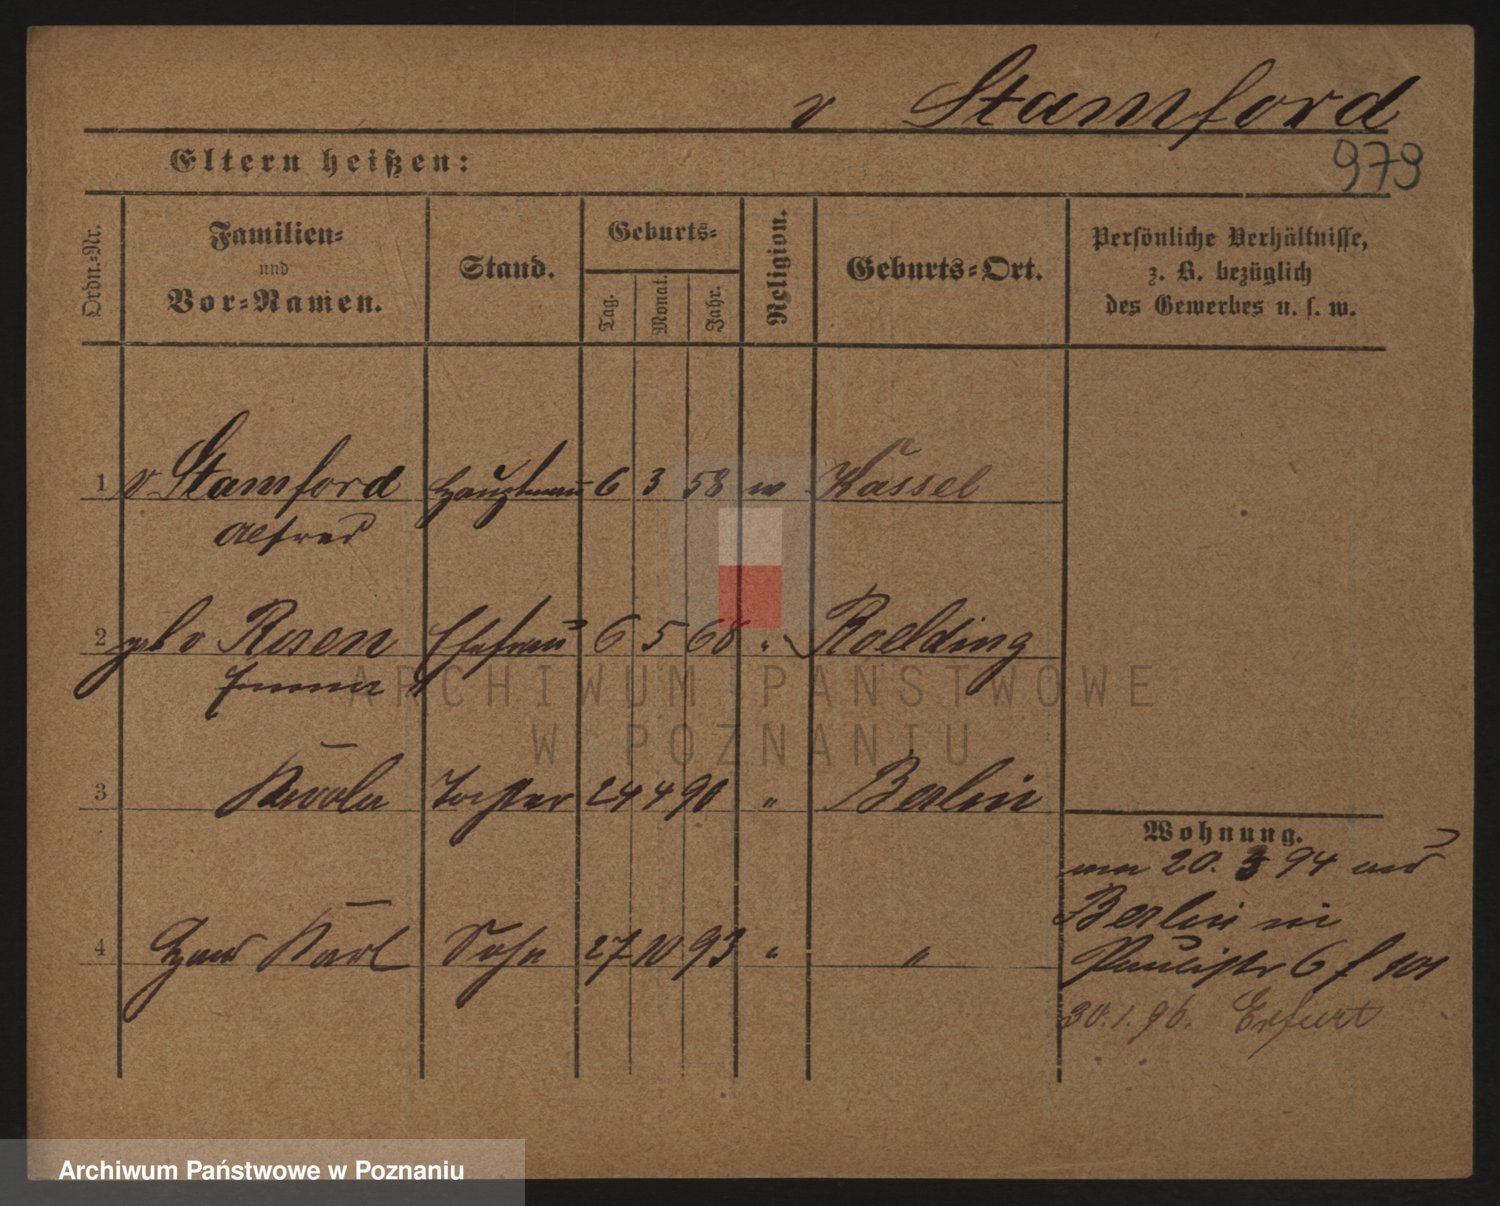 v Stamford
979
Eltern heißen:
Ordn.-Nr.
Familien-
und
Vor-Namen.
Stand.
Geburts-
Tag.
Monat.
Jahr.
Religion.
Geburts-Ort.
Persönliche Verhältnisse,
z. B. bezüglich
des Gewerbes u. s. w.
1 v Stamford Hauptmann 6 3 58 Kassel
Alfred
2 geb v Rosen Ehefrau 6 5 68 " Roelding
Emma
3 Karola Tochter 24 4 90 " Berlin
Wohnung.
20. 3 94 aus
Berlin in
4 Hans Karl Sohn 27 10 93 " "
Paulistr 6 f
30.1.96. Erfurt
ARCHIWUM PAŃSTWOWE
W POZNANIU
Archiwum Państwowe w Poznaniu